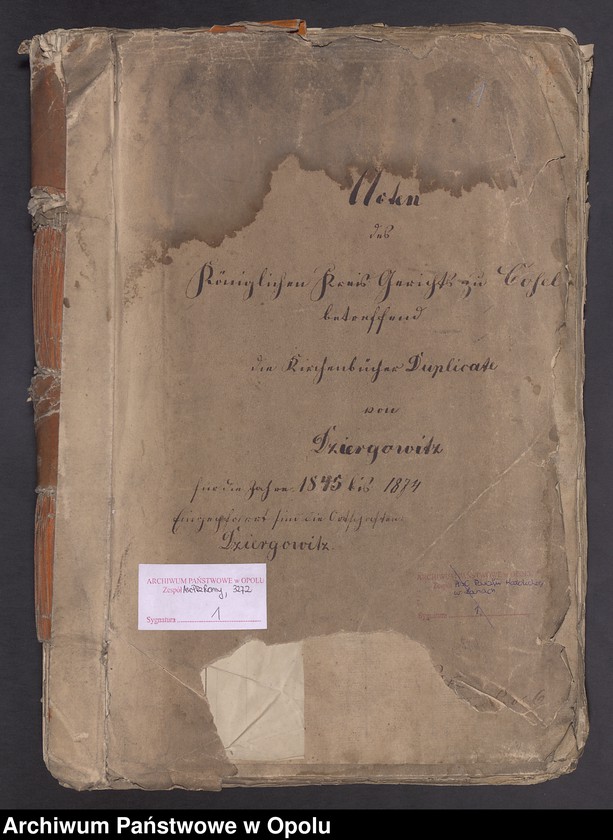 Acten
des
Königlichen Kreis Gerichts zu Cosel
betreffend
die Kirchenbücher Duplicate
von
Dziergowitz
für die Jahre 1845 bis 1874
Eingepfarrt sind die Ortschaften
Dziergowitz
ARCHIWUM PAŃSTWOWE w OPOLU
Zespół 3272
Sygnatura 1
Archiwum Państwowe w Opolu